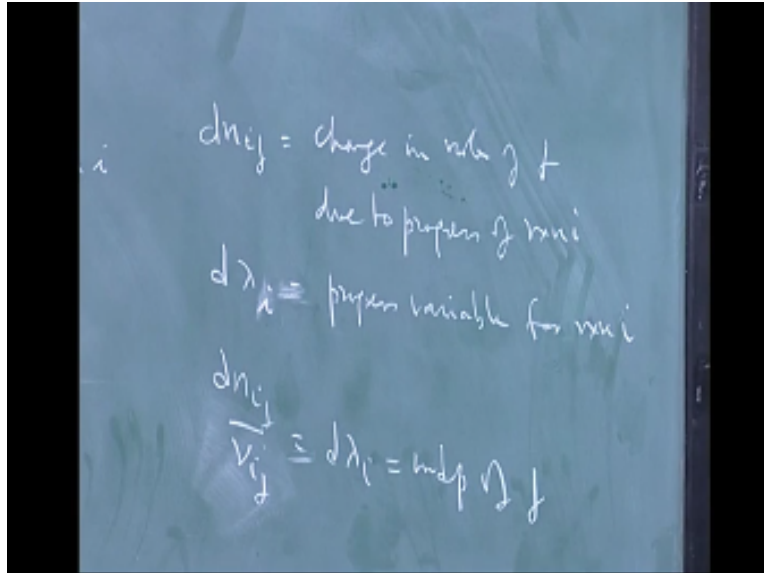 dn_ij = change in moles of j
. i
due to progress of rxn i
dλ_i = progress variable for rxn i
dn_ij / ν_ij ≡ dλ_i = indp of j